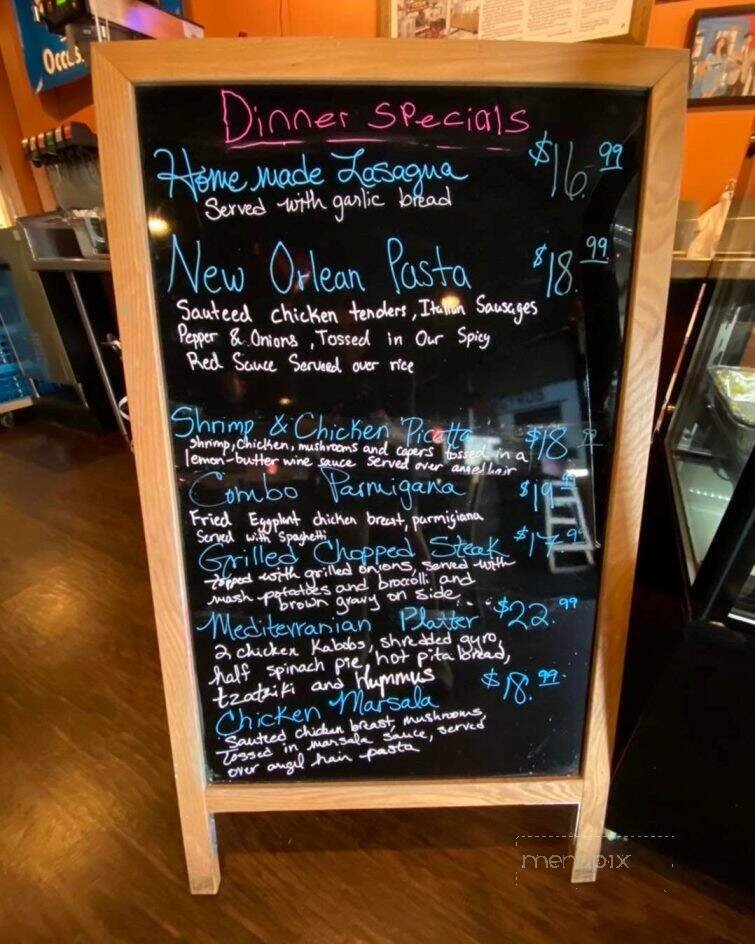 Dinner Specials
Home made Lasagna $16.99
Served with garlic bread
New Orlean Pasta $18.99
Sauteed chicken tenders, Italian Sausages
Pepper & Onions, Tossed in Our Spicy
Red Sauce Serveed over rice
Shrimp & Chicken Picatta $18.99
Shrimp, Chicken, mushrooms and capers tossed in a
lemon-butter wine sauce served over angel hair
Combo Parmigana $19.99
Fried Eggplant chicken breast, parmigiana
Served with Spaghetti
Grilled Chopped Steak $17.99
topped with grilled onions, served with
mash potatoes and broccoli and
brown gravy on side
Mediterranian Platter $22.99
2 chicken Kabobs, shredded gyro,
half spinach pie, hot pita bread,
tzatziki and Hummus
Chicken Marsala $18.99
Sauteed chicken breast, mushrooms,
tossed in marsala sauce, served
over angel hair pasta
menupix